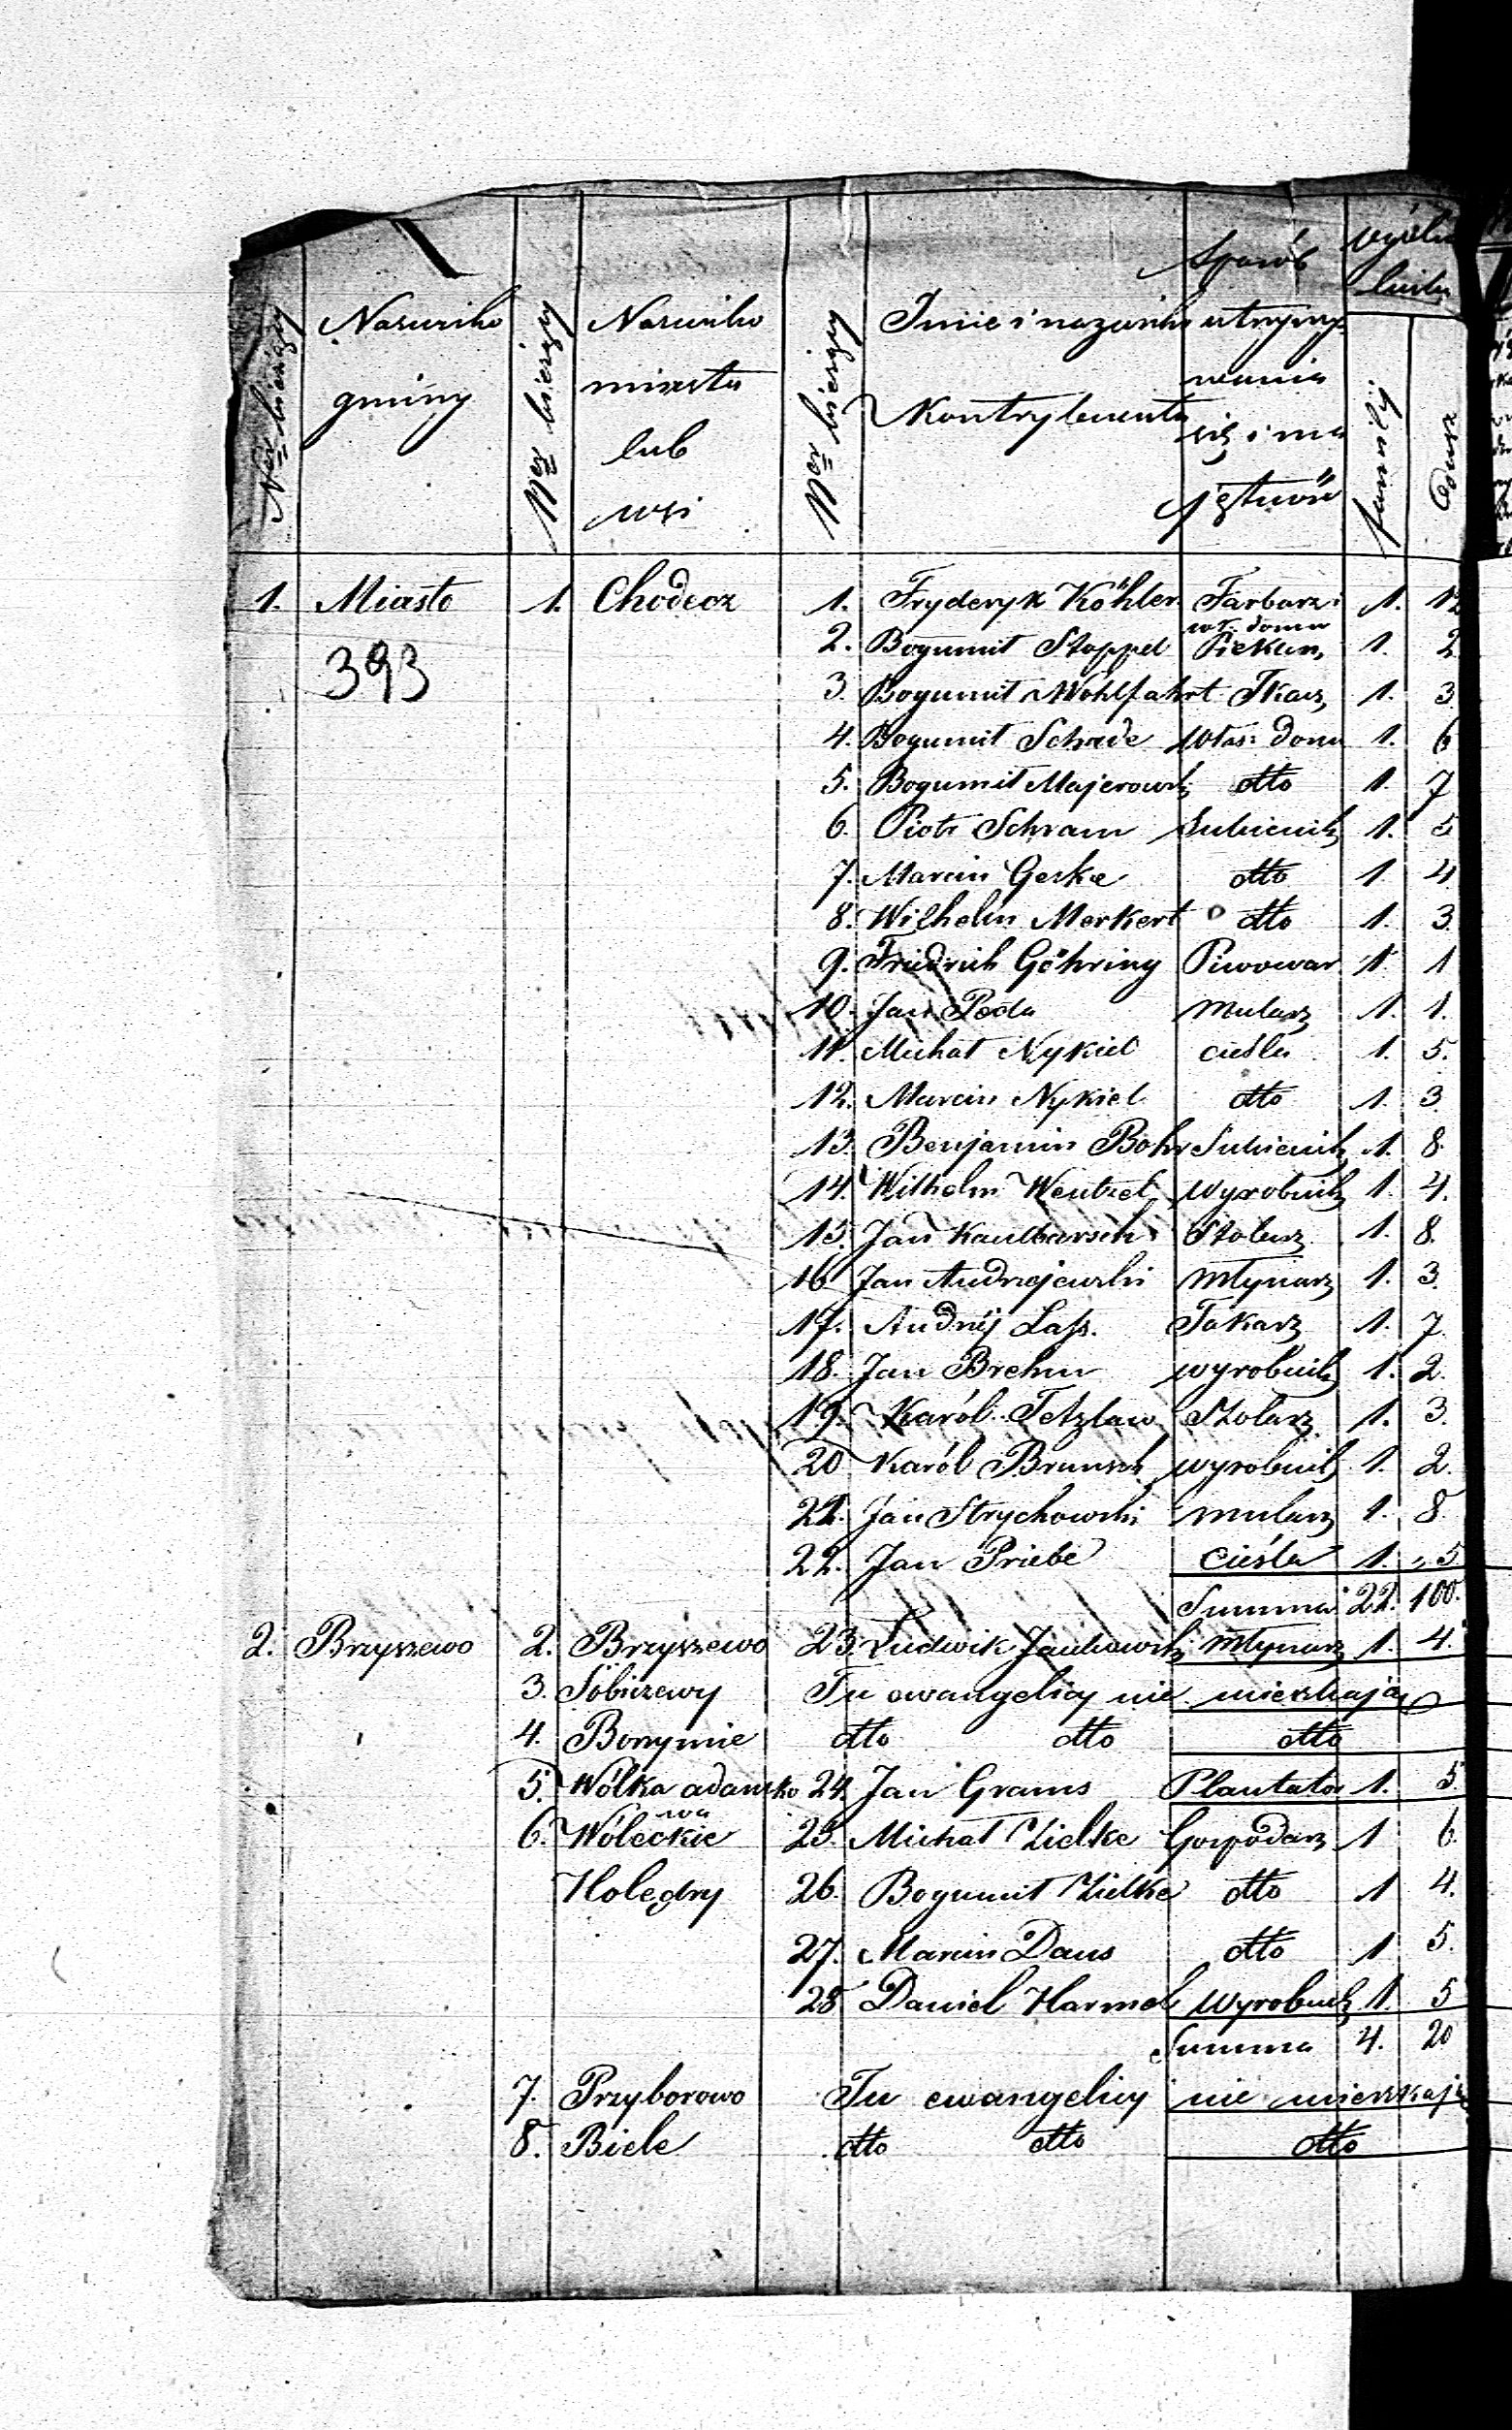 Ner bieżący Nazwisko gminy Ner bieżący Nazwisko miasta lub wsi Ner bieżący Imie i nazwisko Kontrybuenta Sposób utrzymywania się i majętność familij dusz
1. Miasto 1. Chodecz 1. Fryderyk Köhler Farbarz: 1. 12
wł. domu
393 2. Bogumił Stoppel Piekarz 1. 2
3. Bogumił Wohlfahrt Tkacz 1. 3
4. Bogumił Schade Włas: domu 1. 6
5. Bogumił Majerowski dtto 1. 7
6. Piotr Schram Sukiennik 1. 5
7. Marcin Geske dtto 1 4
8. Wilhelm Merkert dtto 1. 3.
9. Friedrich Göhring Piwowar 1 1
10. Jan Poda Mularz 1. 1.
11. Michał Nykiel cieśla 1. 5.
12. Marcin Nykiel dtto 1. 3
13. Benjamin Bohr Sukiennik 1. 8.
14. Wilhelm Wentzel wyrobnik 1. 4.
15. Jan Kaulbarsch Stolarz 1. 8.
16 Jan Andrzejewski Młynarz 1. 3.
17. Andrzij Lass. Tokarz 1. 7.
18. Jan Brehm wyrobnik 1. 2.
19. Karól Tetzlaw Stolarz 1. 3.
20 Karól Brunsch wyrobnik 1. 2.
21. Jan Strychowski mularz 1. 8.
22. Jan Priebe Cieśla 1. 5
Summa 22. 100.
2. Brzyszewo 2. Brzyszewo 23. Ludwik Jankowski Młynarz 1. 4.
3. Sobiczewy Tu ewangelicy nie mieszkają
4. Borzymie dtto dtto dtto
5. Wólka adamsko 24. Jan Grams Plantator 1. 5.
wa
6. Wóleckie 25. Michał Zielke Gospodarz 1 6.
Holędry 26. Bogumił Zielke dtto 1 4.
27. Marcin Daus dtto 1 5.
28 Daniel Harmel Wyrobnik 1. 5
Summa 4. 20
7. Przyborowo Tu ewangelicy nie mieszkają
8. Biele dtto dtto dtto